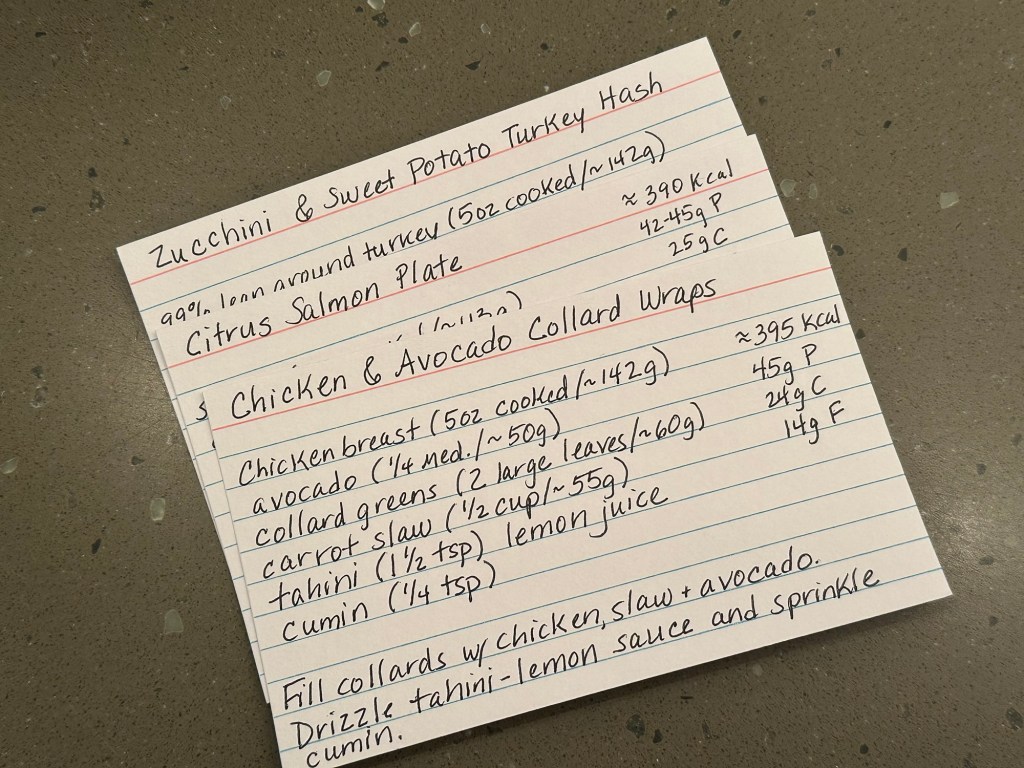 Zucchini & Sweet Potato Turkey Hash
99% lean ground turkey (5oz cooked/~142g)
Citrus Salmon Plate
≈ 390 Kcal
42-45g P
25g C
Chicken & Avocado Collard Wraps
≈395 Kcal
45g P
24g C
14g F
Chicken breast (5oz cooked/~142g)
avocado (1/4 med./~50g)
collard greens (2 large leaves/~60g)
carrot slaw (1/2 cup/~55g)
tahini (1 1/2 tsp) lemon juice
cumin (1/4 tsp)
Fill collards w/ chicken, slaw + avocado.
Drizzle tahini-lemon sauce and sprinkle
cumin.